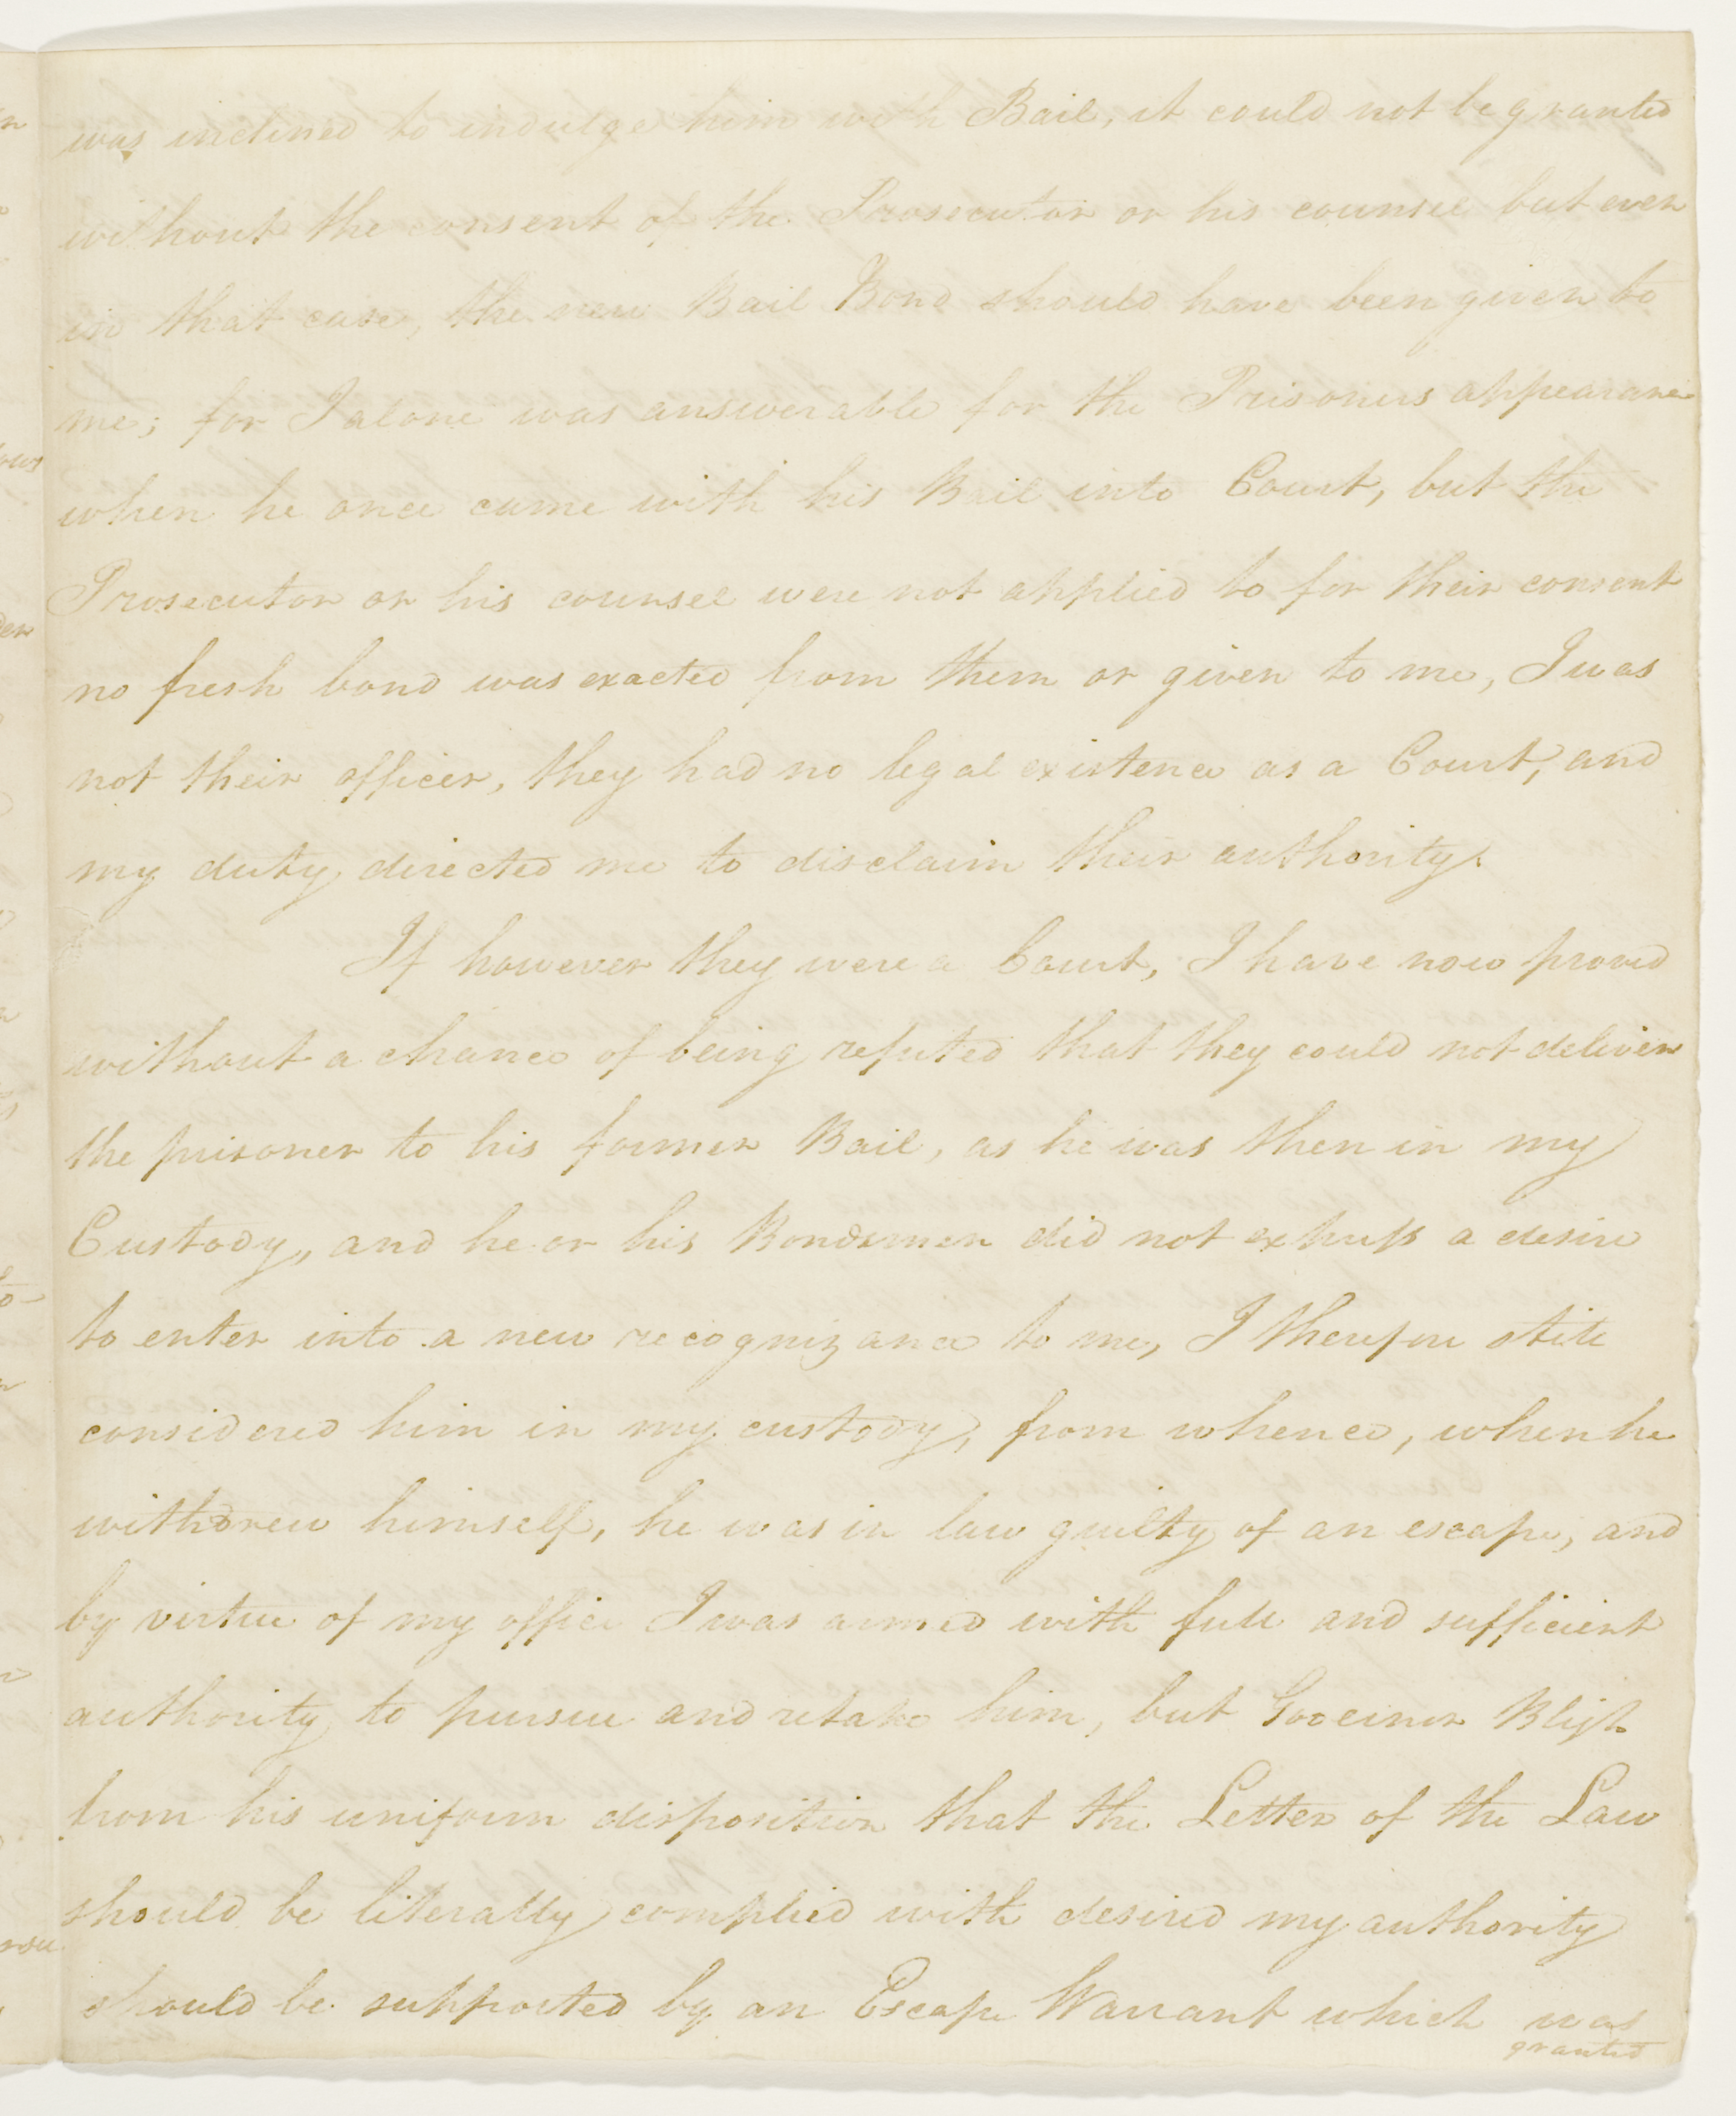 was inclined to indulge him with Bail, it could not be granted
without the consent of the Prosecutor or his counsel but even
in that case, the new Bail Bond should have been given to
me; for I alone was answerable for the Prisoners appearance
when he once came with his Bail into Court, but the
Prosecutor or his counsel were not applied to for their consent
no fresh bond was exacted from them or given to me, I was
not their officer, they had no legal existence as a Court, and
my duty directed me to disclaim their authority.
If however they were a Court, I have now proved
without a chance of being refuted that they could not deliver
the prisoner to his former Bail, as he was then in my
Custody, and he or his Bondsmen did not express a desire
to enter into a new recognizance to me, I therefore still
considered him in my custody, from whence, when he
withdrew himself, he was in law guilty of an escape, and
by virtue of my office I was armed with full and sufficient
authority to pursue and retake him, but Governor Bligh
from his uniform disposition that the Letter of the Law
should be literally complied with desired my authority
should be supported by an Escape Warrant which was
granted